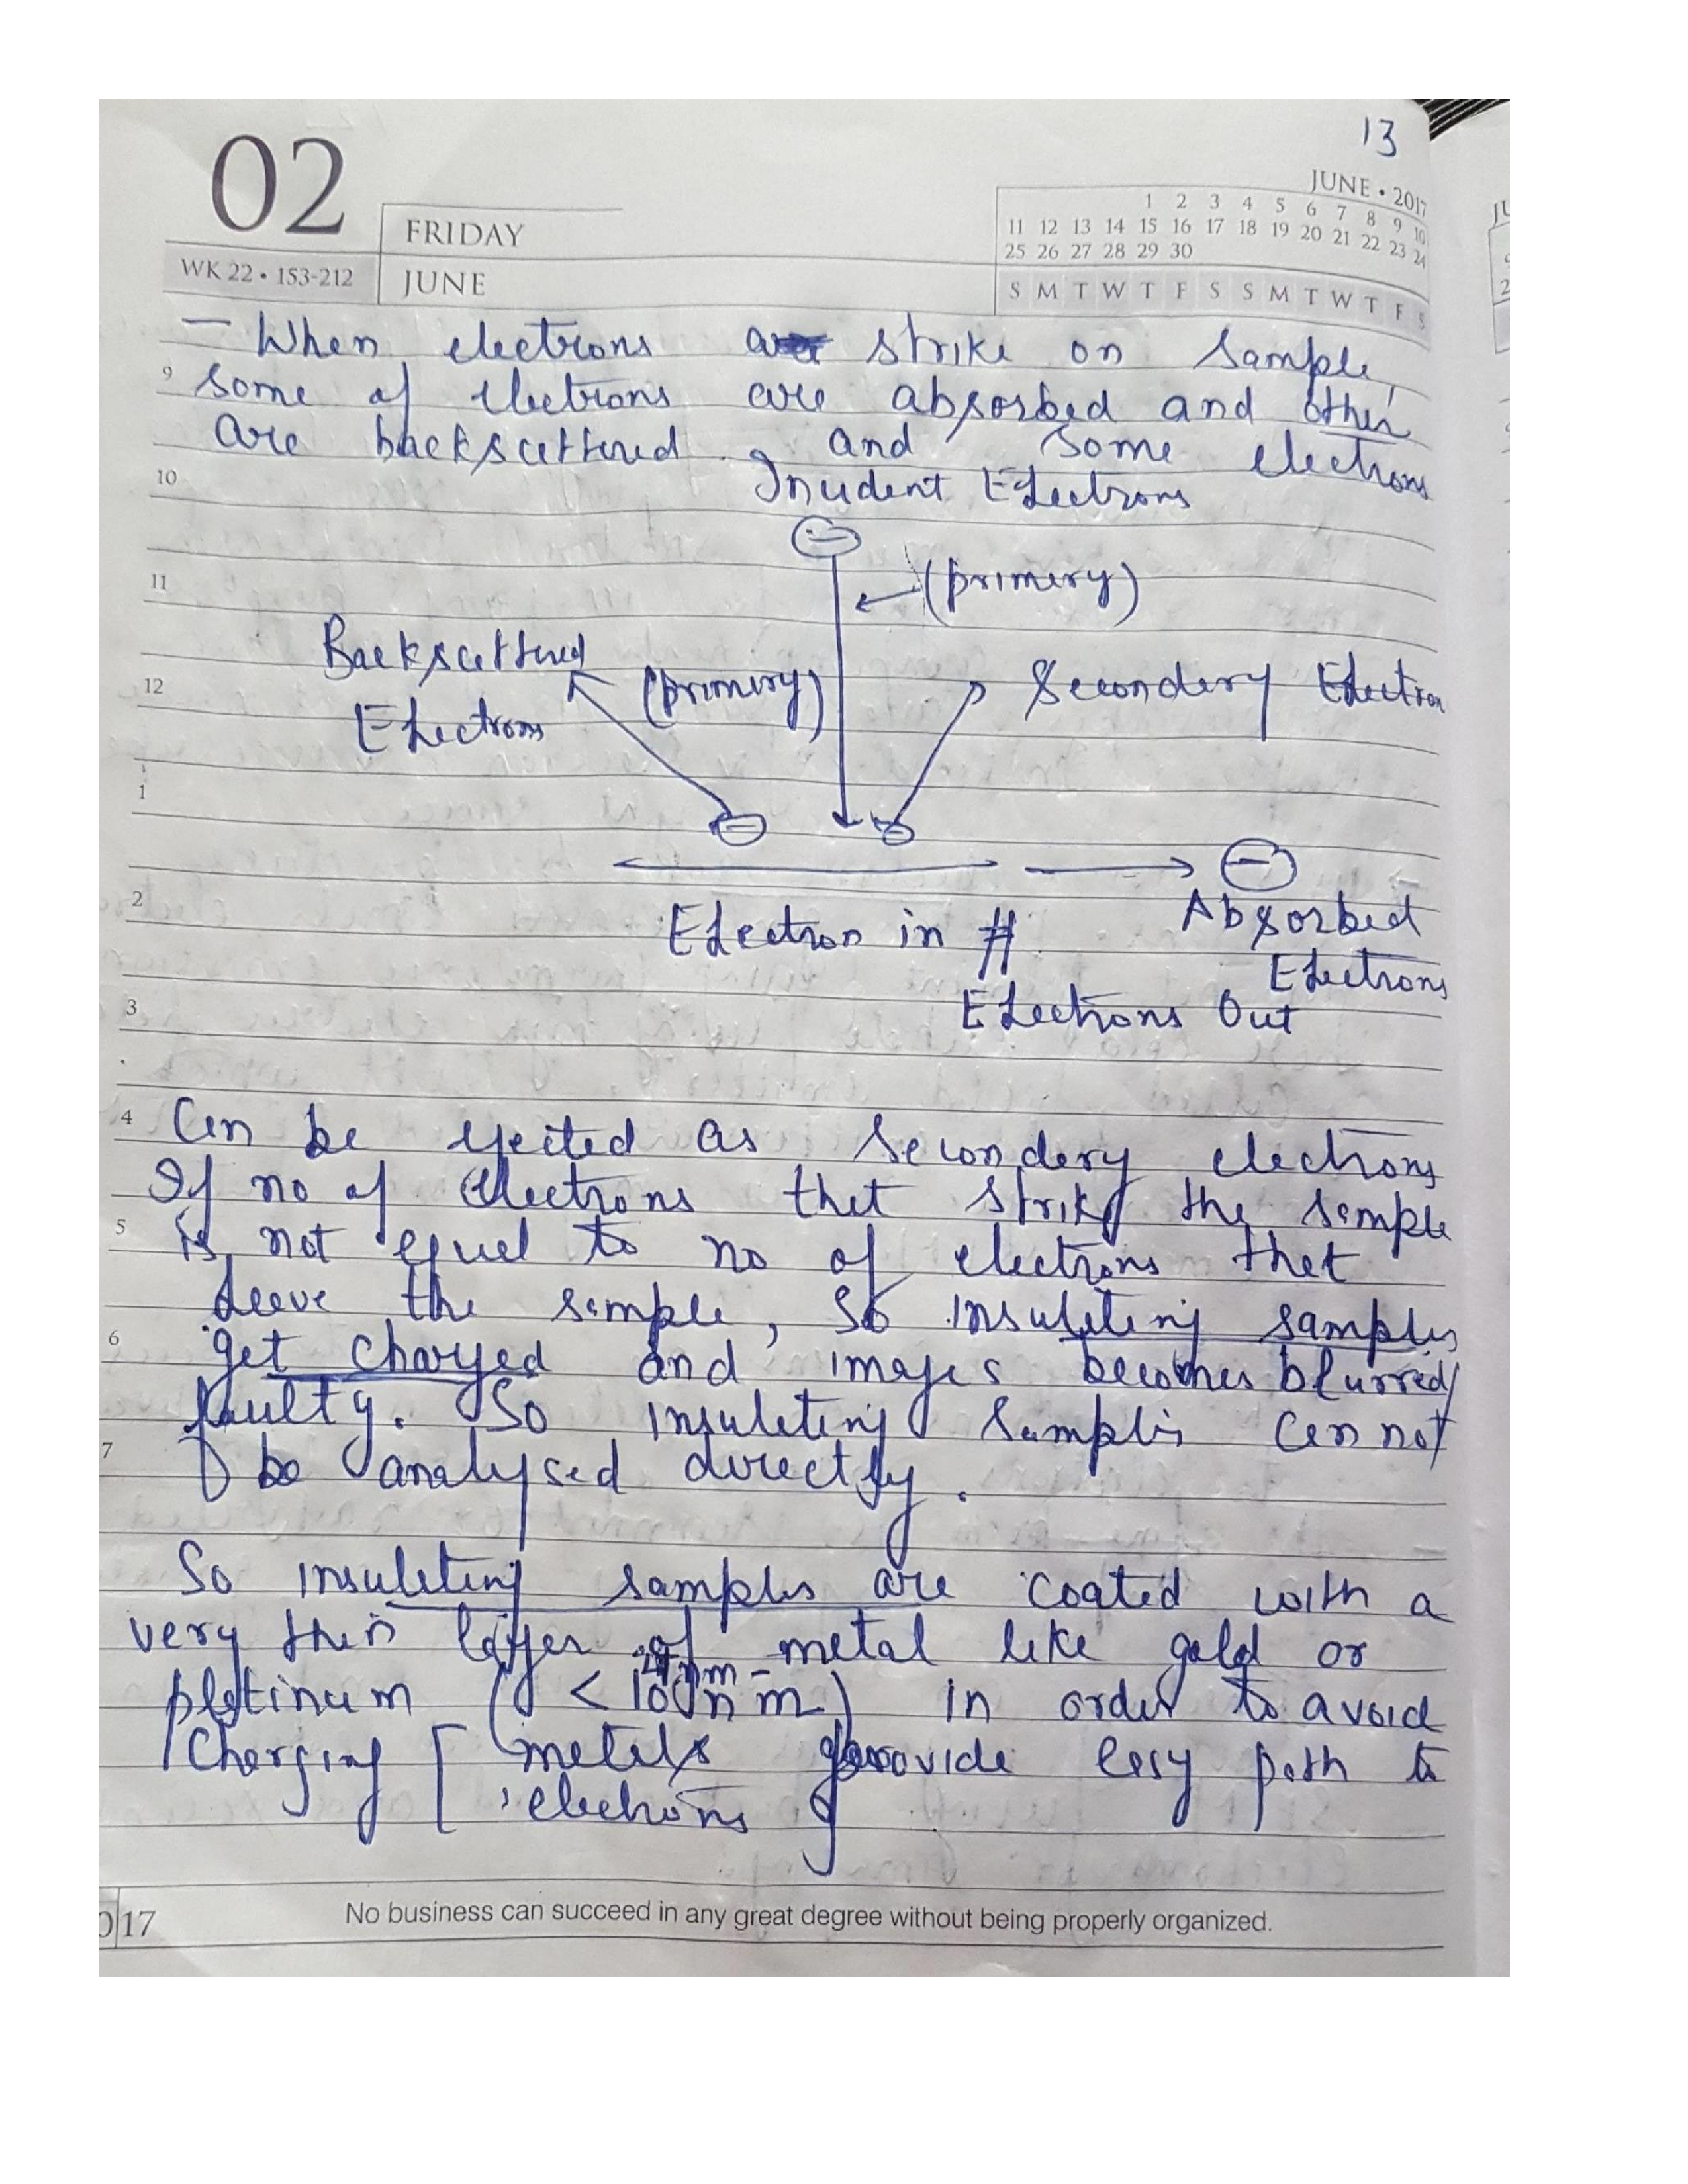 13
02
FRIDAY
JUNE
WK 22 • 153-212
JUNE • 2017
1 2 3 4 5 6 7 8 9 10
11 12 13 14 15 16 17 18 19 20 21 22 23 24
25 26 27 28 29 30
S M T W T F S S M T W T F S
— When electrons strike on sample,
9 some of electrons are absorbed and other
are backscettered and some electrons
10 Incident Electrons
11 (primery)
Backscettered
12 (primery) Secondery Electron
Electrons
1
2 Electron in ≠ Absorbed
Electrons
3 Electrons Out
4 Cen be ejected as secondery electrons
If no of electrons thet strike the semple
5 is not equel to no of electrons thet
leeve the semple, so insuleting samples
6 get charged and images becomes blurred/
faulty. So insuleting samples cen not
7 be analysed directly.
So insuleting samples are coated with a
very thin layer of metal like gold or
pletinum (< 100 nm) in order to avoid
Cherging [ metels provide eesy peth to
electrons
17
No business can succeed in any great degree without being properly organized.